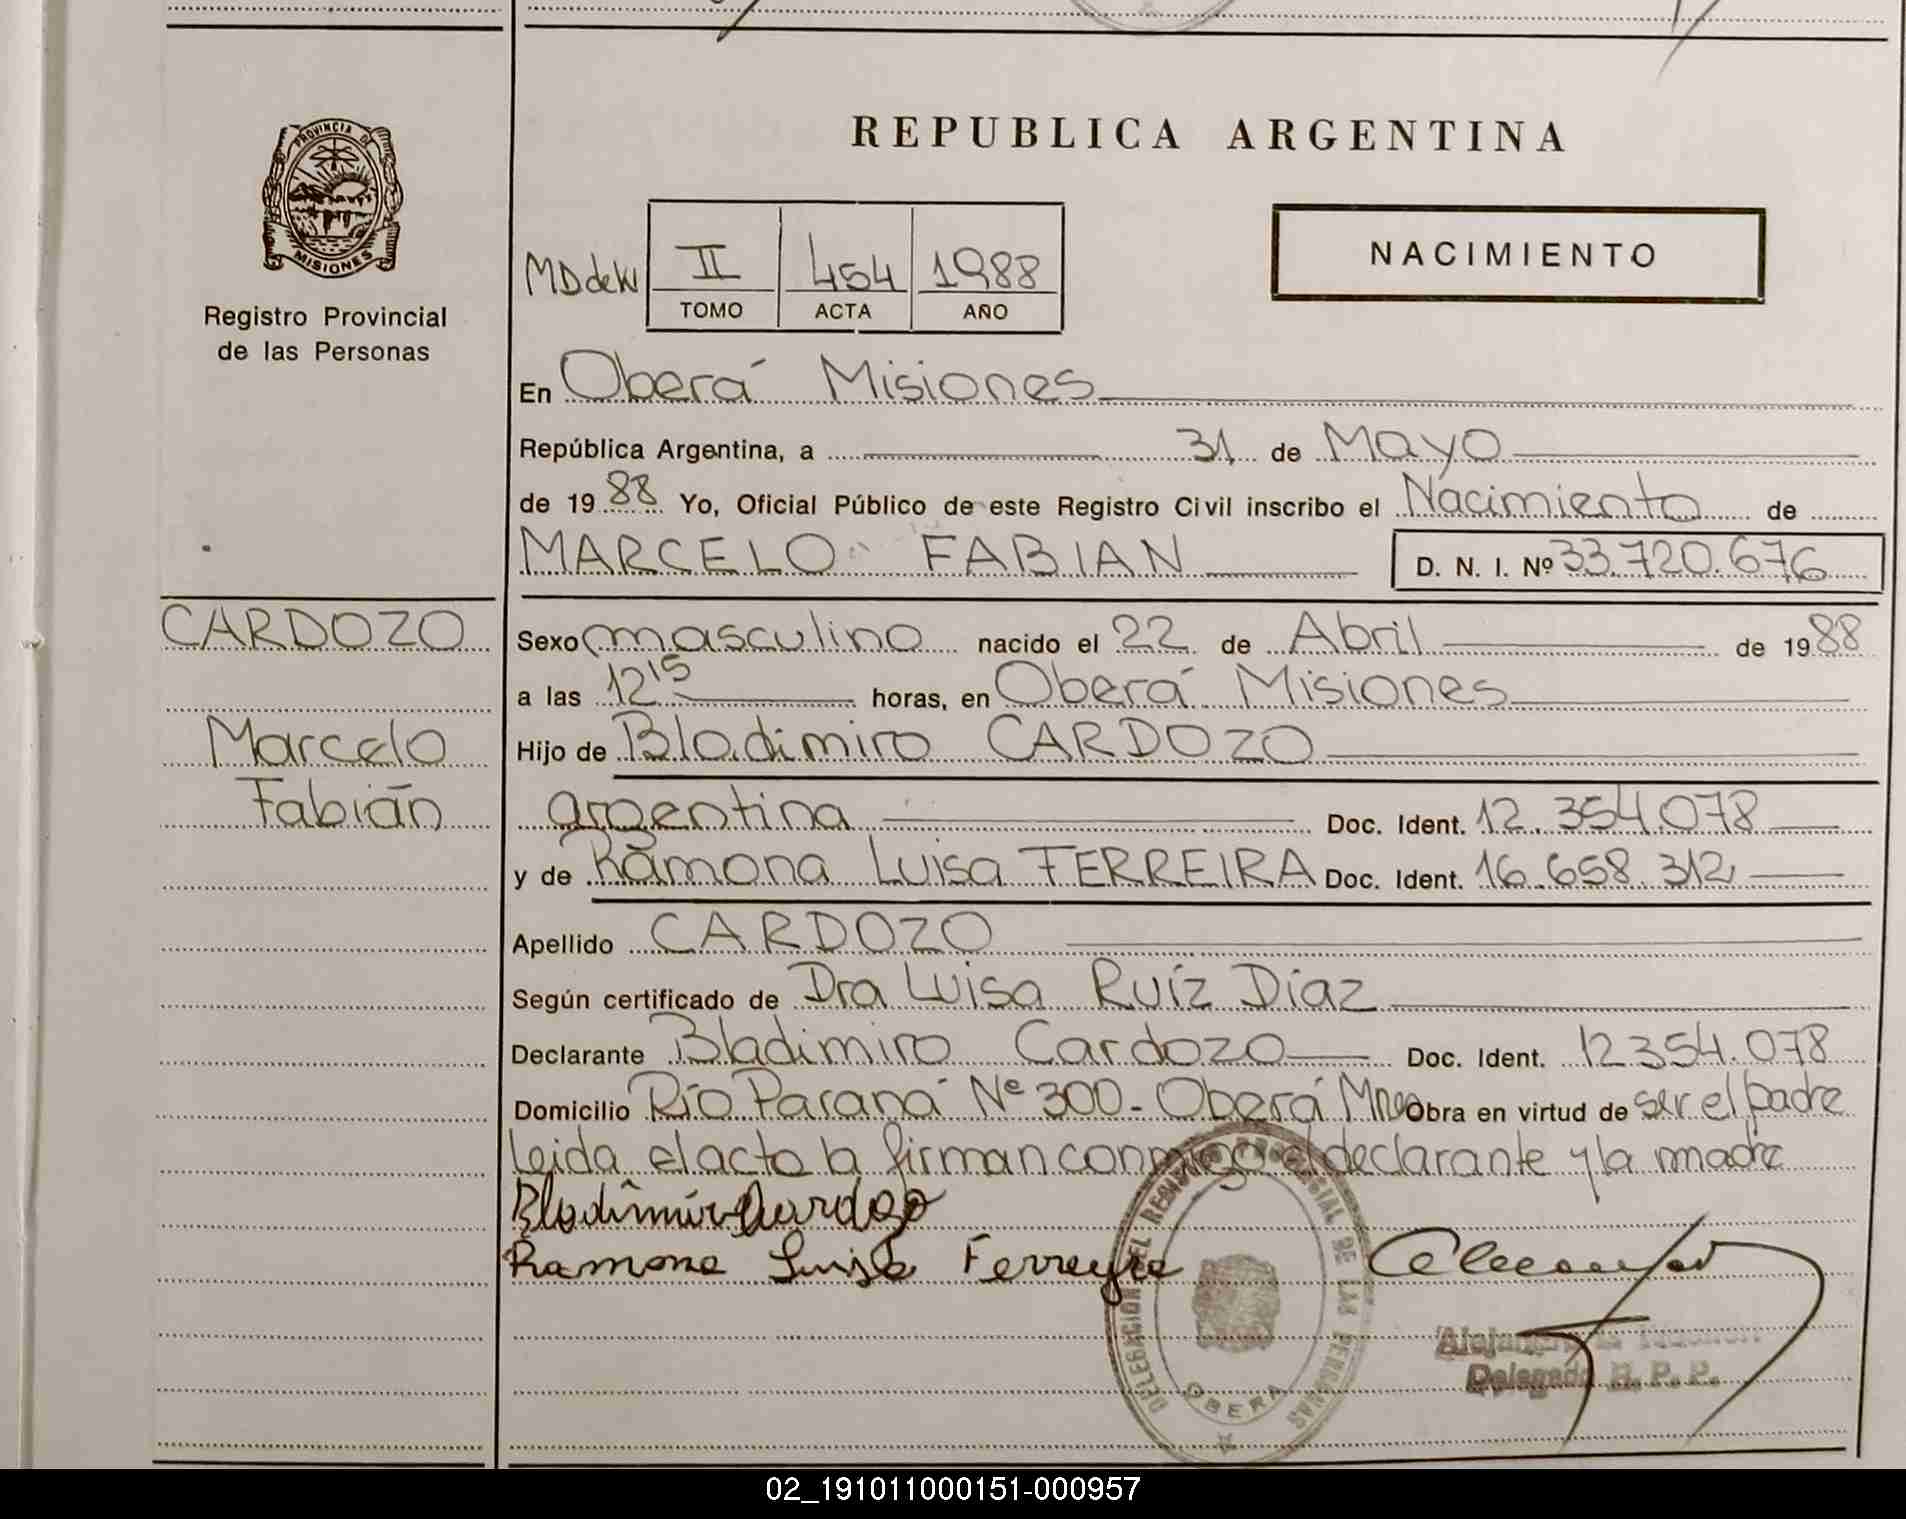 REPUBLICA ARGENTINA
PROVINCIA DE
MISIONES
Registro Provincial
de las Personas
II 454 1988
TOMO ACTA AÑO
NACIMIENTO
En Oberá Misiones
República Argentina, a 31 de Mayo
de 1988 Yo, Oficial Público de este Registro Civil inscribo el Nacimiento de
MARCELO FABIAN D. N. I. Nº 33.720.676
CARDOZO
Marcelo
Fabián
Sexo masculino nacido el 22 de Abril de 1988
a las 12 15 horas, en Oberá Misiones
Hijo de Bladimiro CARDOZO
argentina Doc. Ident. 12.354.078
y de Ramona Luisa FERREIRA Doc. Ident. 16.658.312
Apellido CARDOZO
Según certificado de Dra Luisa Ruíz Díaz
Declarante Bladimiro Cardozo Doc. Ident. 12354.078
Domicilio Río Paraná Nº 300 - Oberá Obra en virtud de ser el padre
leida el acto la firman conmigo el declarante y la madre
Bladimiro Cardozo
Ramona Luisa Ferreyra
DELEGACION DEL REGISTRO PROVINCIAL DE LAS PERSONAS
OBERA
Delegado R. P. P.
02_191011000151-000957